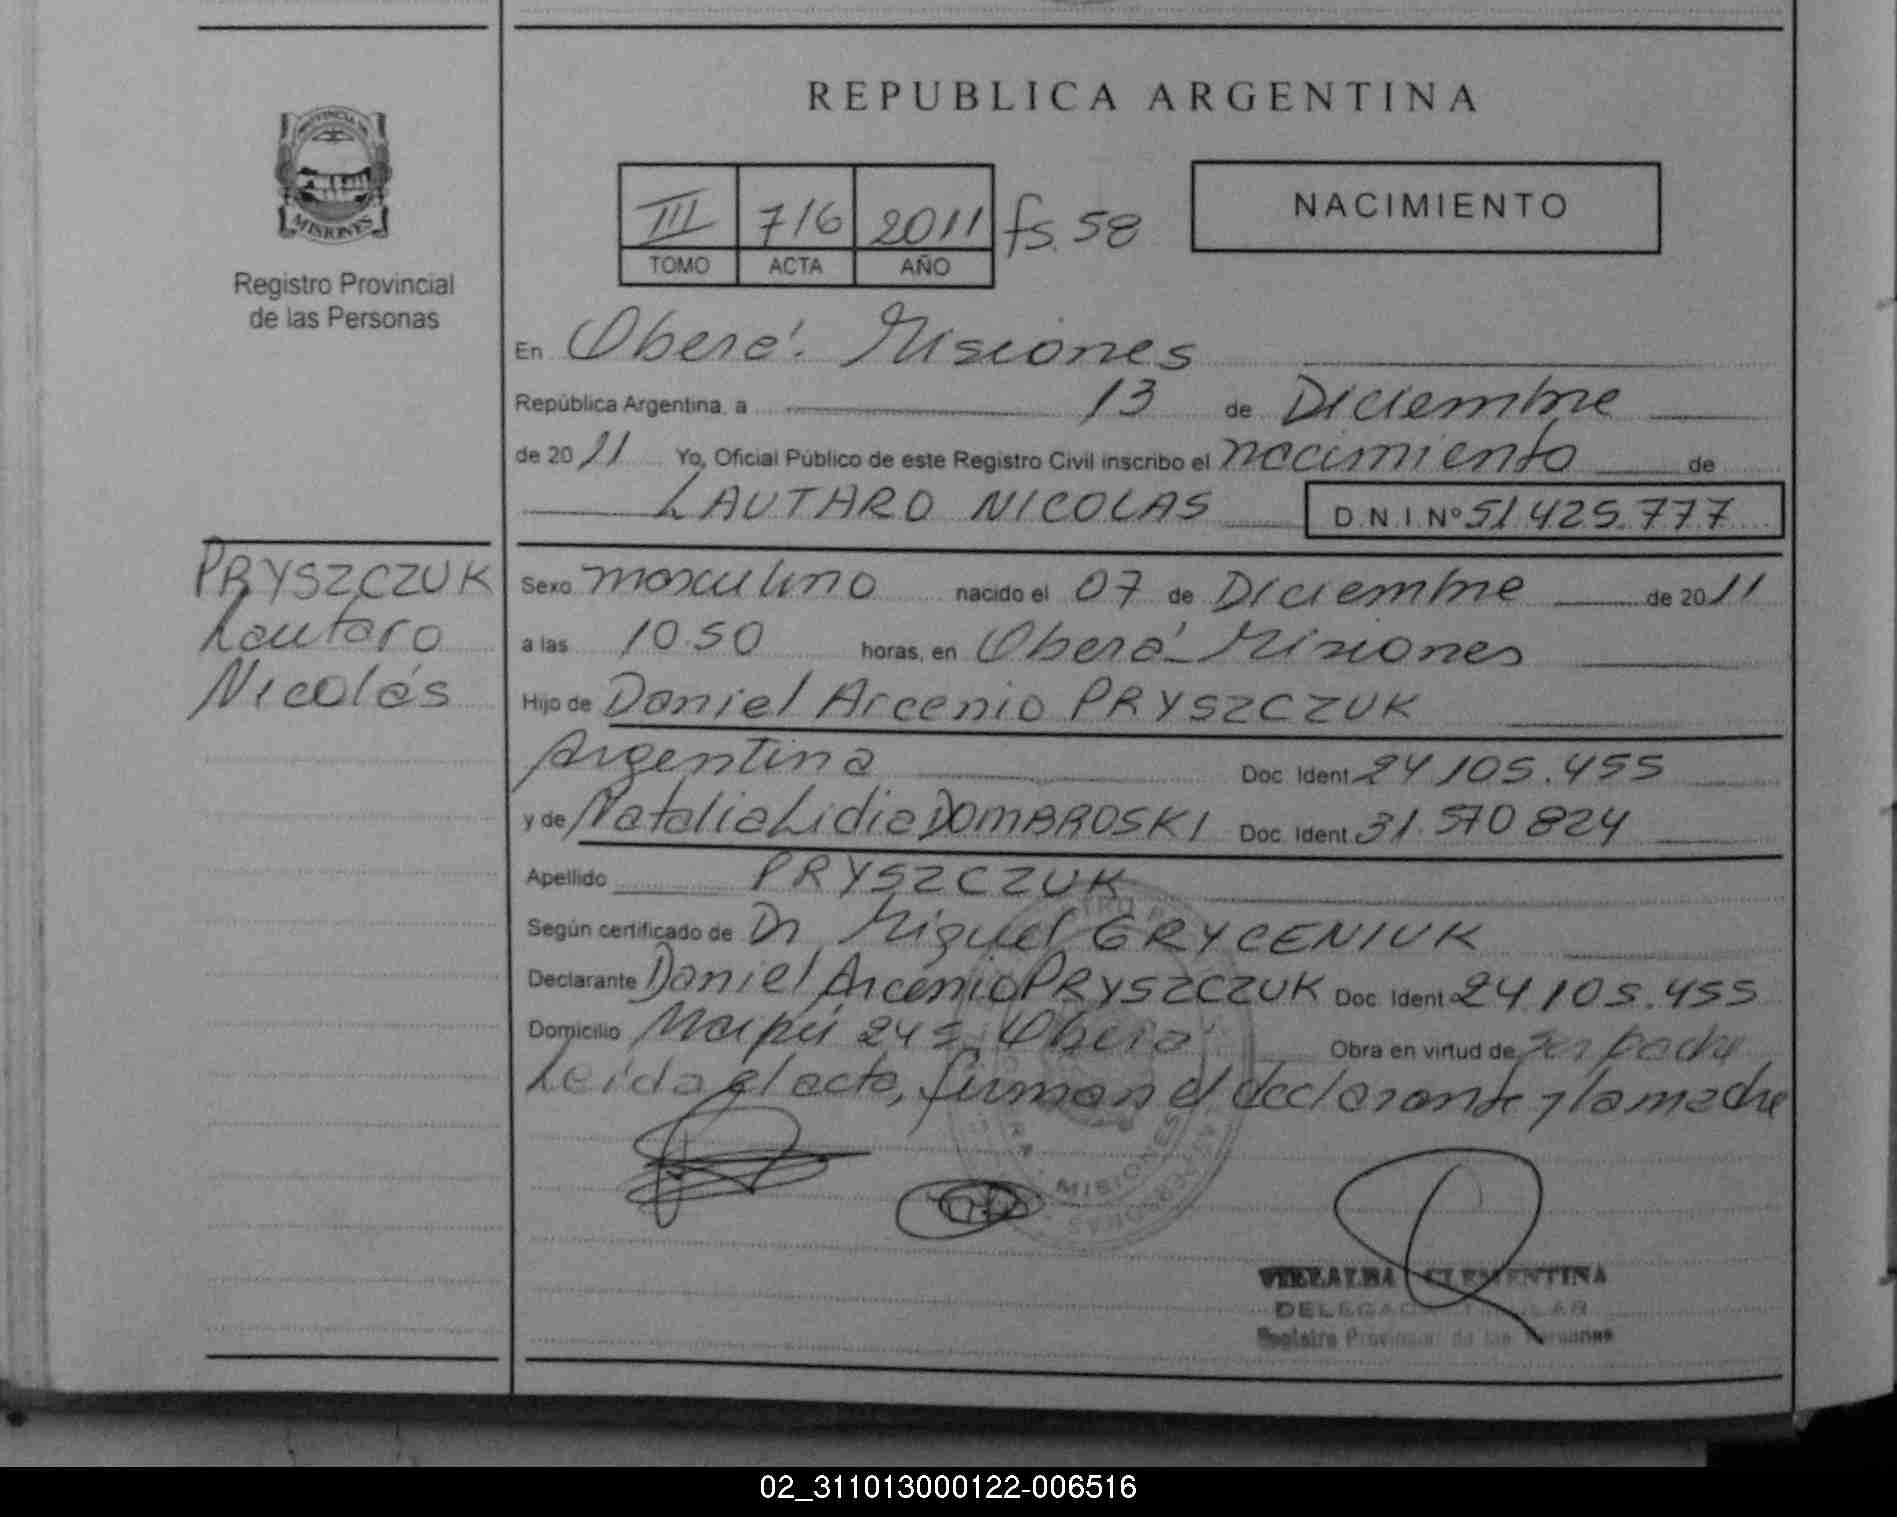 REPUBLICA ARGENTINA
PROVINCIA DE
MISIONES
Registro Provincial
de las Personas
III 716 2011 fs. 58
TOMO ACTA AÑO
NACIMIENTO
En Oberá. Misiones
República Argentina, a 13 de Diciembre
de 20 11 Yo, Oficial Público de este Registro Civil inscribo el nacimiento de
LAUTARO NICOLAS D.N.I. Nº 51.425.777
PRYSZCZUK
Lautaro
Nicolás
Sexo masculino nacido el 07 de Diciembre de 20 11
a las 10.50 horas, en Oberá - Misiones
Hijo de Daniel Arcenio PRYSZCZUK
Argentina Doc. Ident. 24.105.455
y de Natalia Lidia DOMBROSKI Doc. Ident. 31.570.824
Apellido PRYSZCZUK
Según certificado de Dr Miguel GRYCENIUK
Declarante Daniel Arcenio PRYSZCZUK Doc. Ident. 24.105.455
Domicilio Maipú 245 Oberá Obra en virtud de Ser padre
Leída el acta, firman el declarante y la madre
MISIONES
VILLALBA CLEMENTINA
DELEGADA TITULAR
Registro Provincial de las Personas
02_311013000122-006516